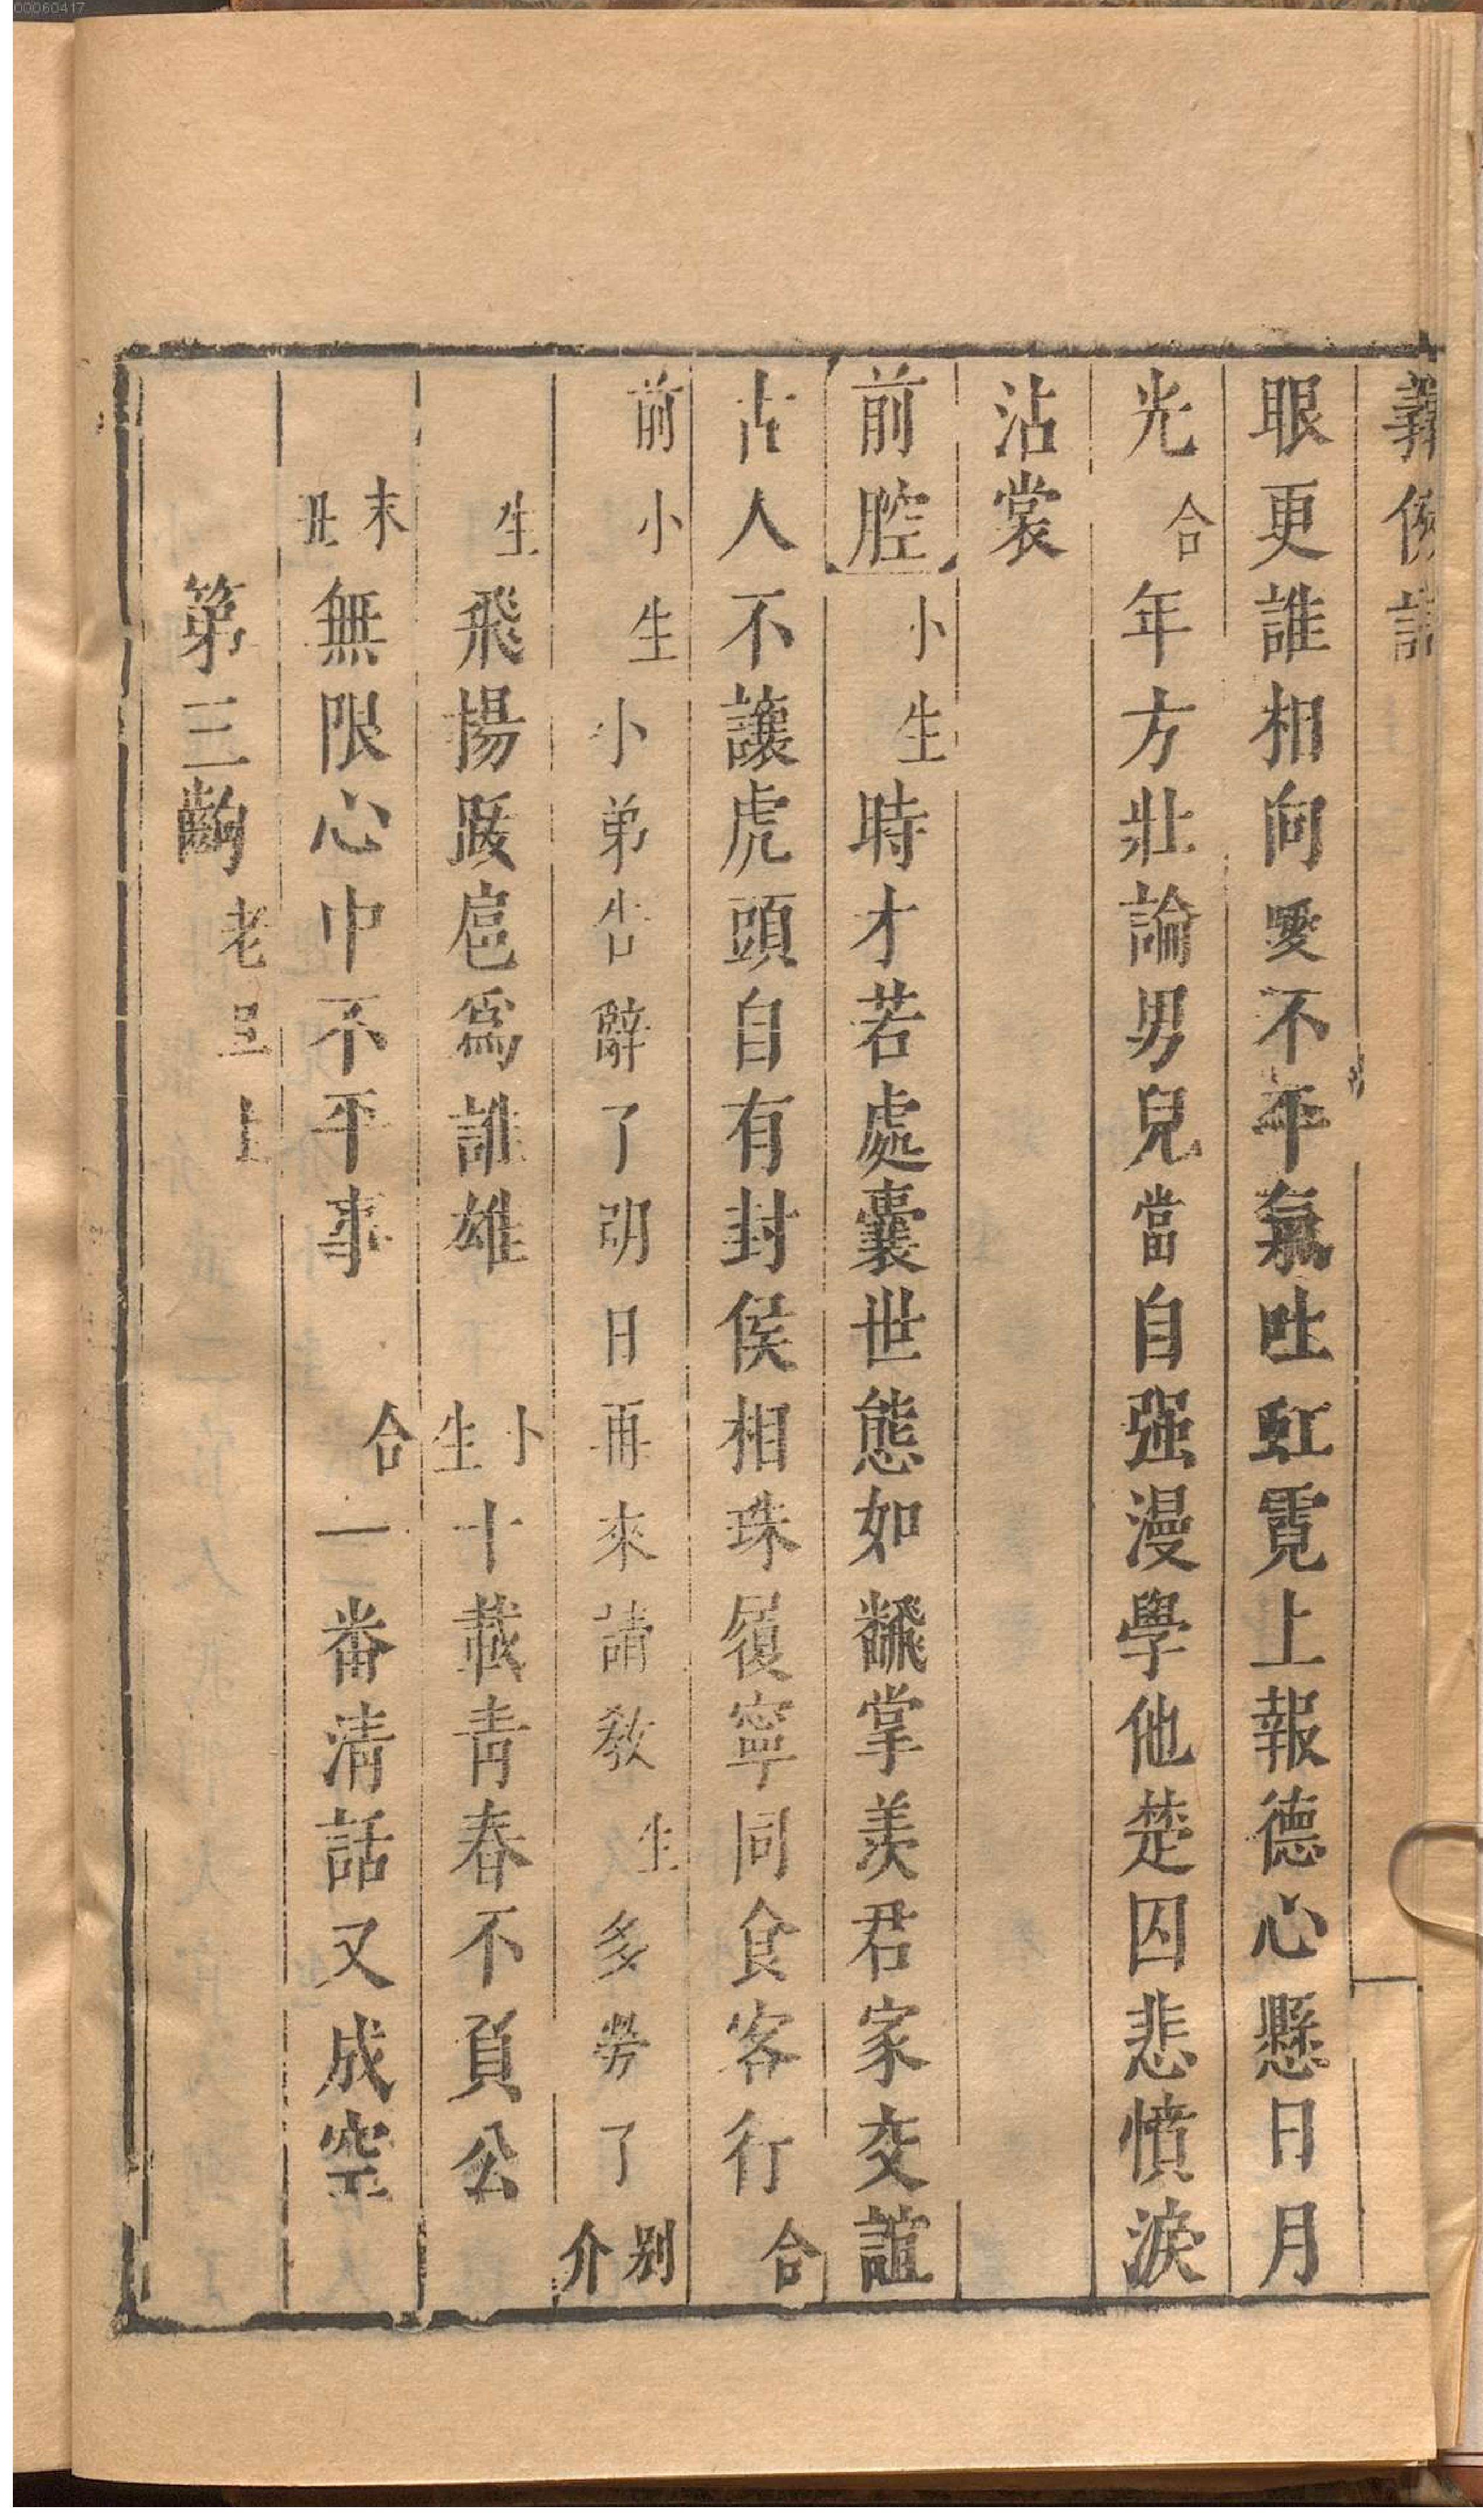 00060417
義俠記
眼更誰相向要不平氣吐虹霓上報德心懸日月
光合年方壯論男兒當自强漫學他楚囚悲憤淚
沾裳
前腔小生時才若處囊世態如飜掌羨君家交誼
古人不讓虎頭自有封侯相珠履寧同食客行合
前小生小弟告辭了明日再來請敎生多勞了别介
生飛揚跋扈爲誰雄小生十載靑春不負公
末丑無限心中不平事合一番淸話又成空
第三齣老旦上